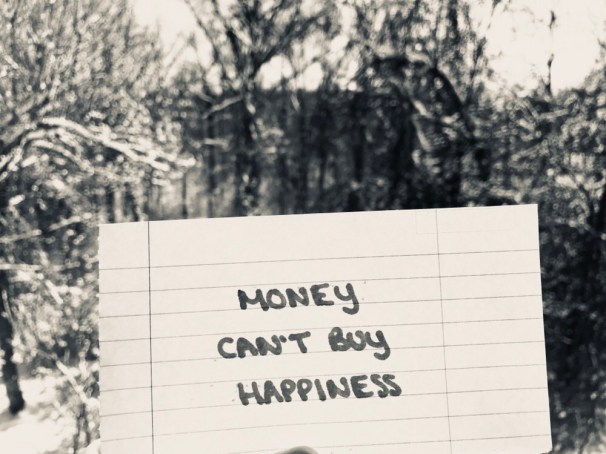 MONEY
CAN'T BUY
HAPPINESS